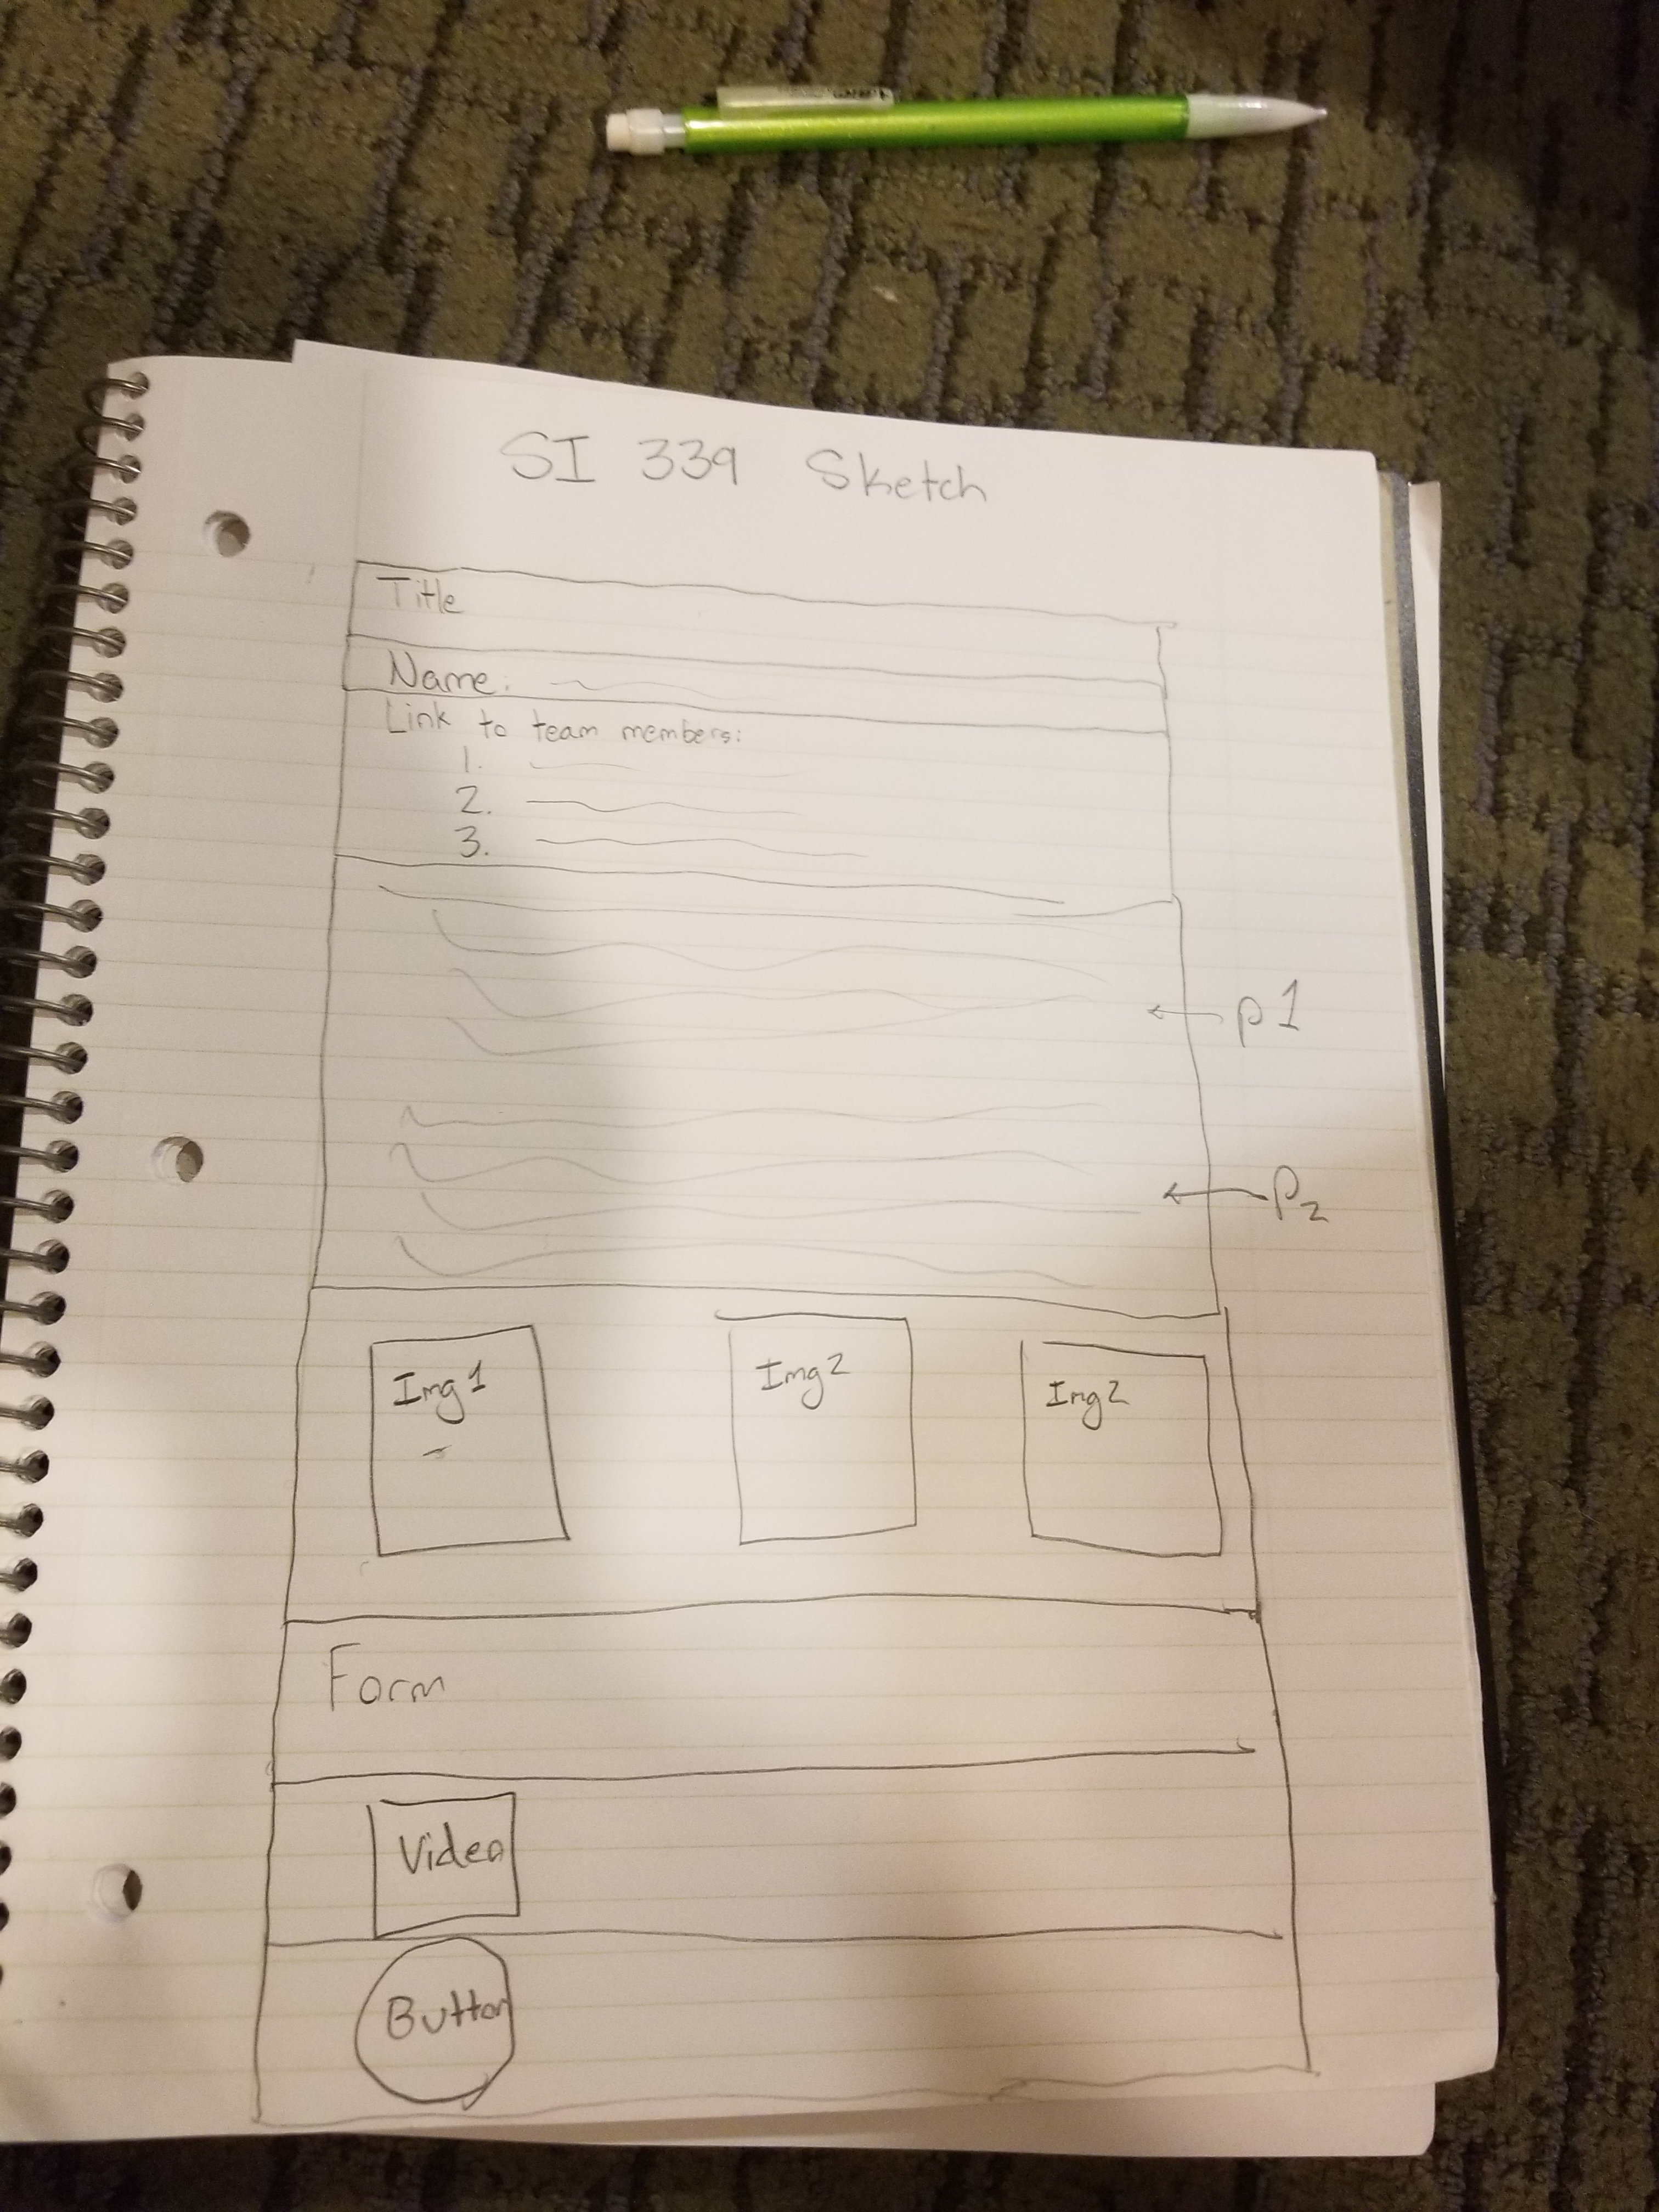 SI 339 Sketch
Title
Name:
Link to team members:
1.
2.
3.
p1
p2
Img1
Img2
Img2
Form
Video
Button